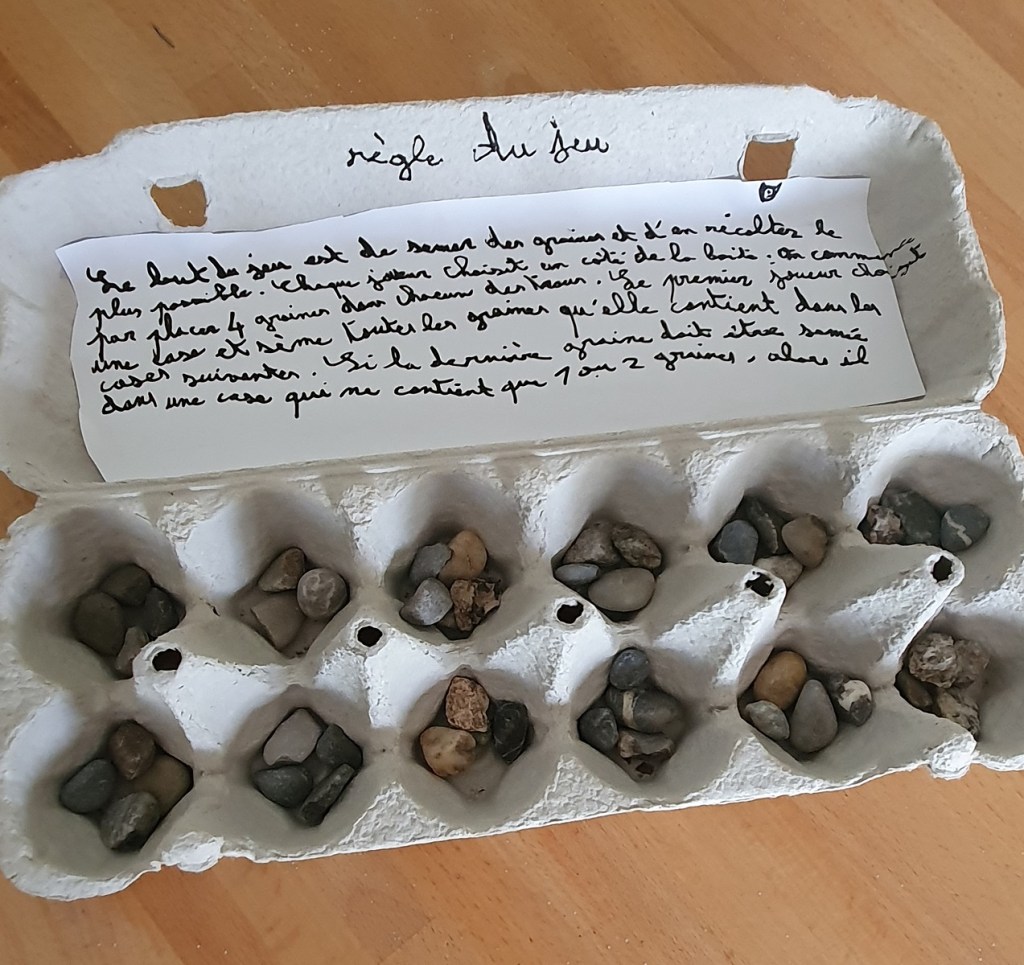 règle du jeu
Le but du jeu est de semer des graines et d'en récolter le
plus possible. Chaque joueur choisit un côté de la boîte. On commence
par placer 4 graines dans chacun des trous. Le premier joueur choisit
une case et sème toutes les graines qu'elle contient dans les
cases suivantes. Si la dernière graine doit être semée
dans une case qui ne contient que 1 ou 2 graines, alors il